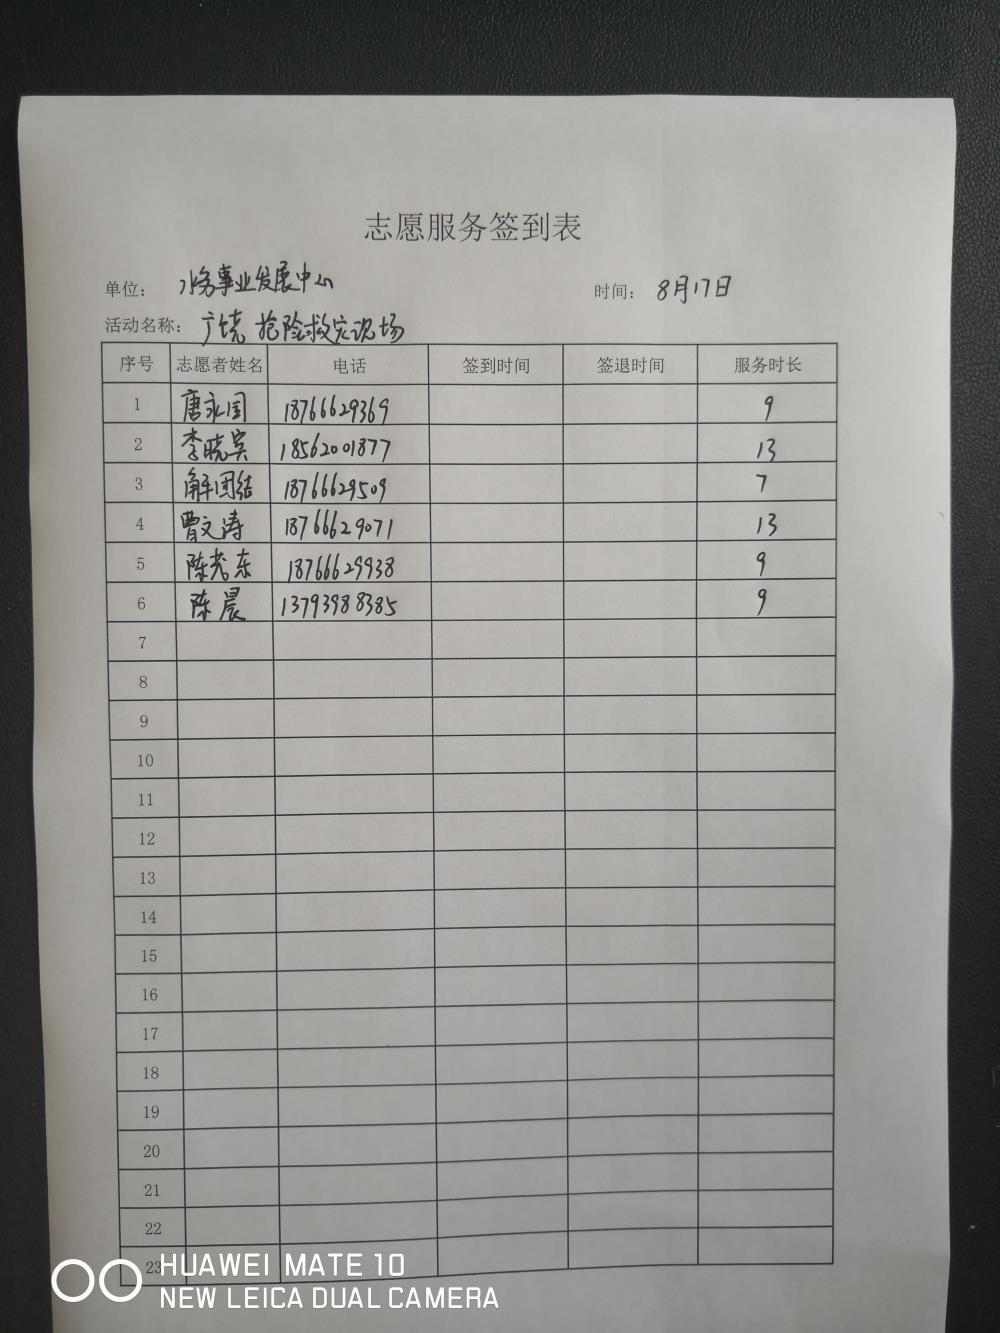 志愿服务签到表
单位： 水务事业发展中心 时间： 8月17日
活动名称： 广饶抢险救灾现场
序号 志愿者姓名 电话 签到时间 签退时间 服务时长
1 唐永国 18766629369 9
2 李晓宾 18562001877 13
3 解团结 18766629509 7
4 曹文涛 18766629071 13
5 陈光东 18766629938 9
6 陈晨 13793988385 9
7
8
9
10
11
12
13
14
15
16
17
18
19
20
21
22
23
HUAWEI MATE 10
NEW LEICA DUAL CAMERA